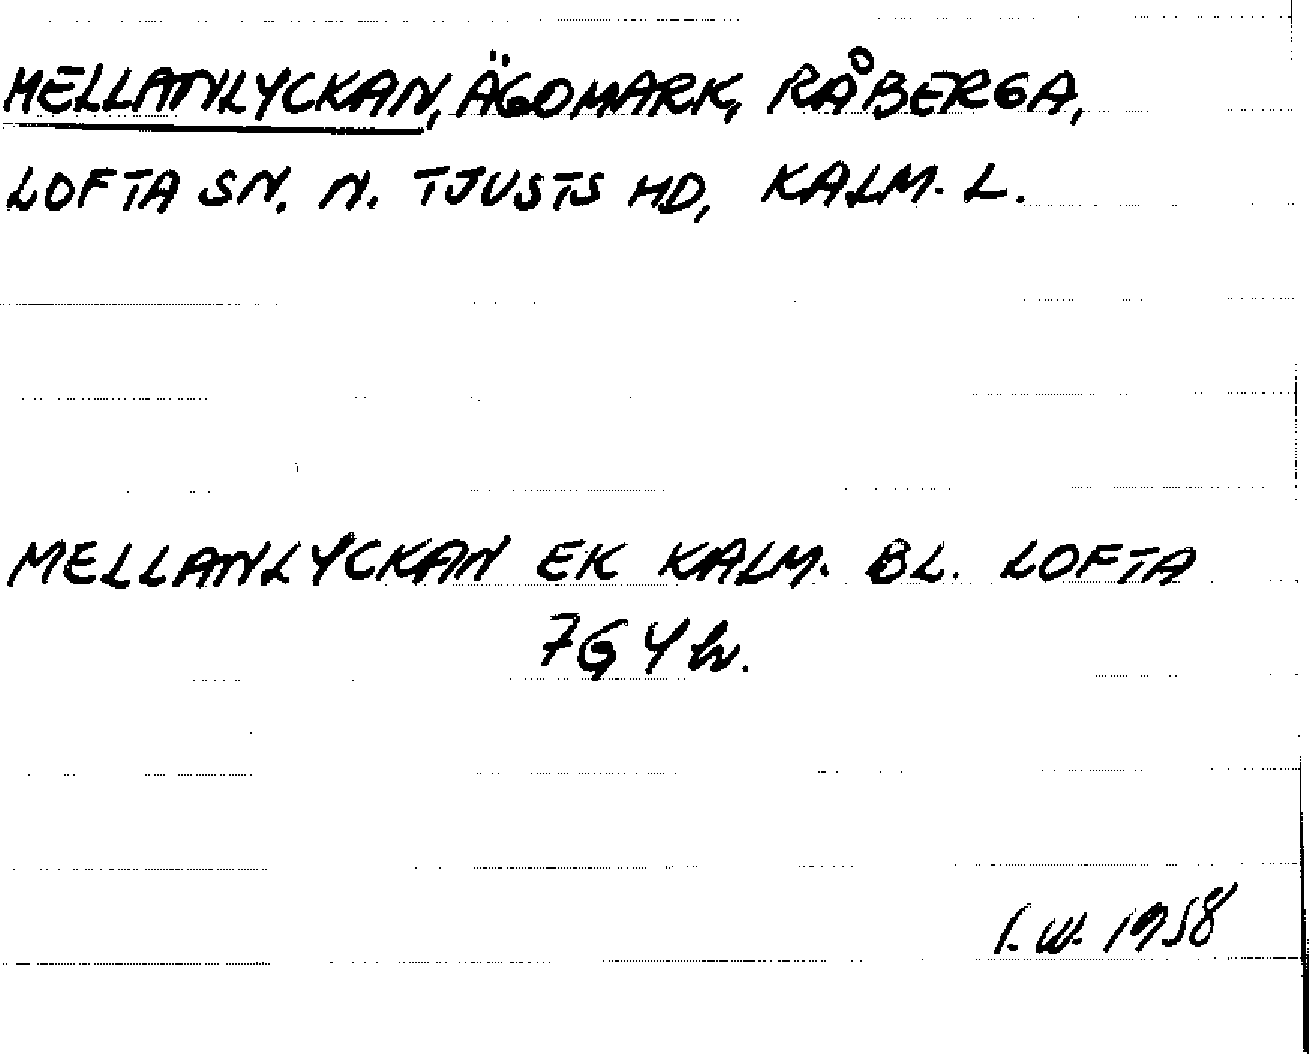 MELLANLYCKAN, ÄGOMARK, RÅBERGA,
LOFTA SN. N. TJUSTS HD, KALM. L.
MELLANLYCKAN EK KALM. BL. LOFTA
7G 4h.
I.W. 1958